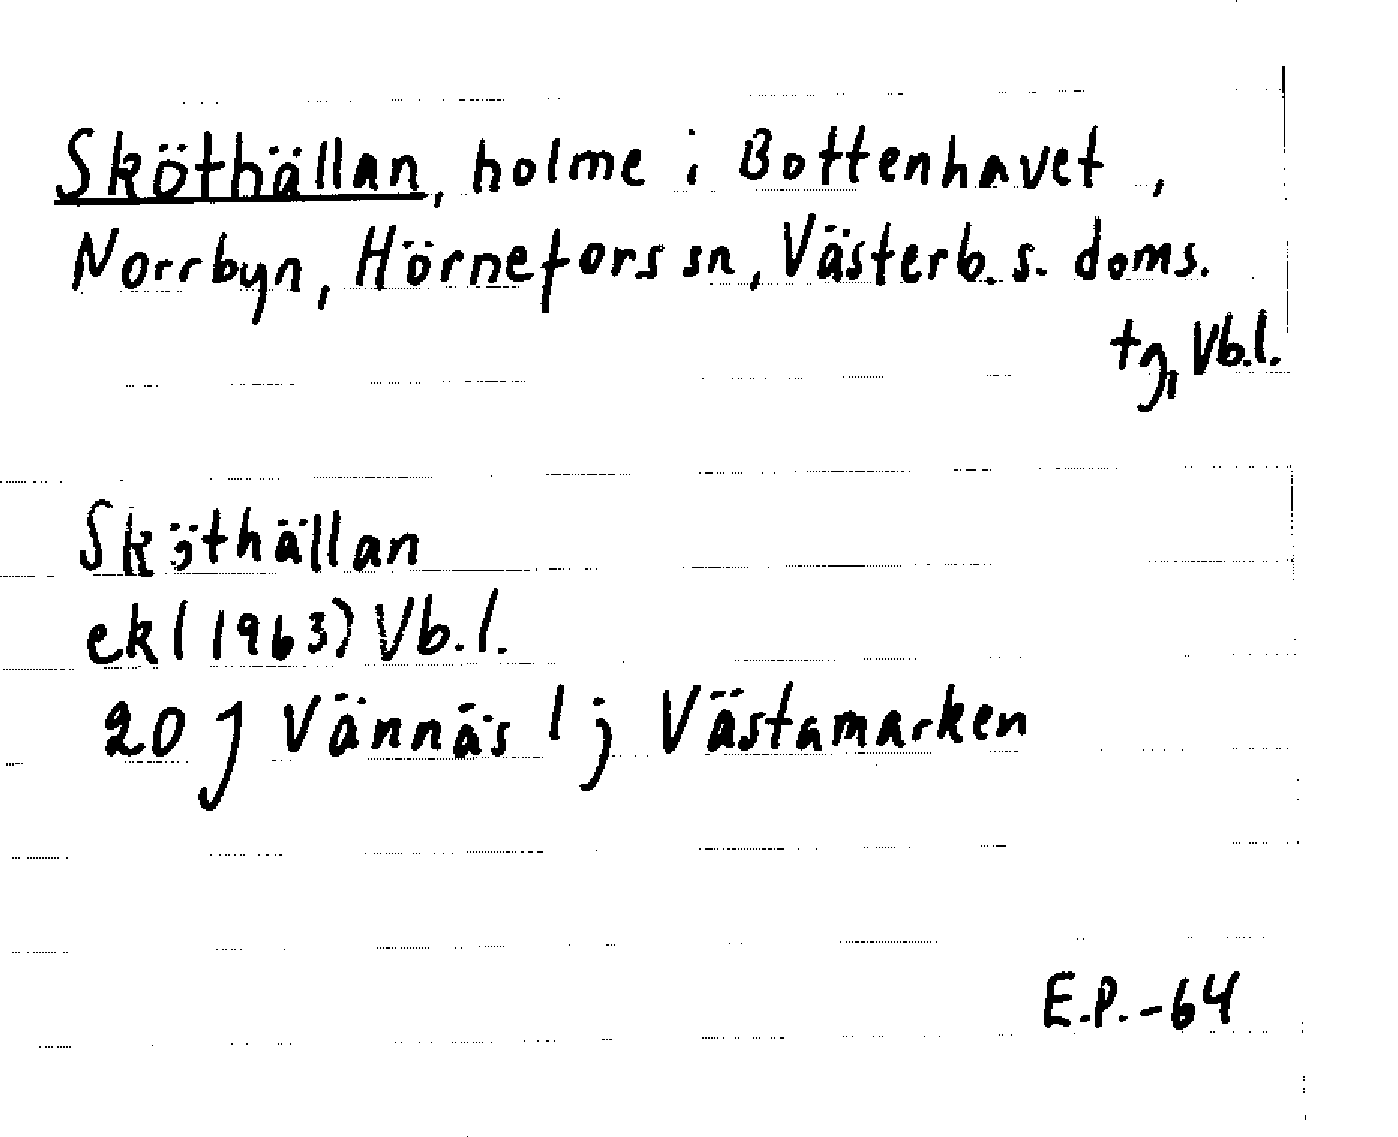 Sköthällan, holme i Bottenhavet,
Norrbyn, Hörnefors sn, Västerb. s. doms.
tg, Vb.l.
Sköthällan
ek (1963) Vb.l.
20 J Vännäs l j Västamarken
E.P.-64